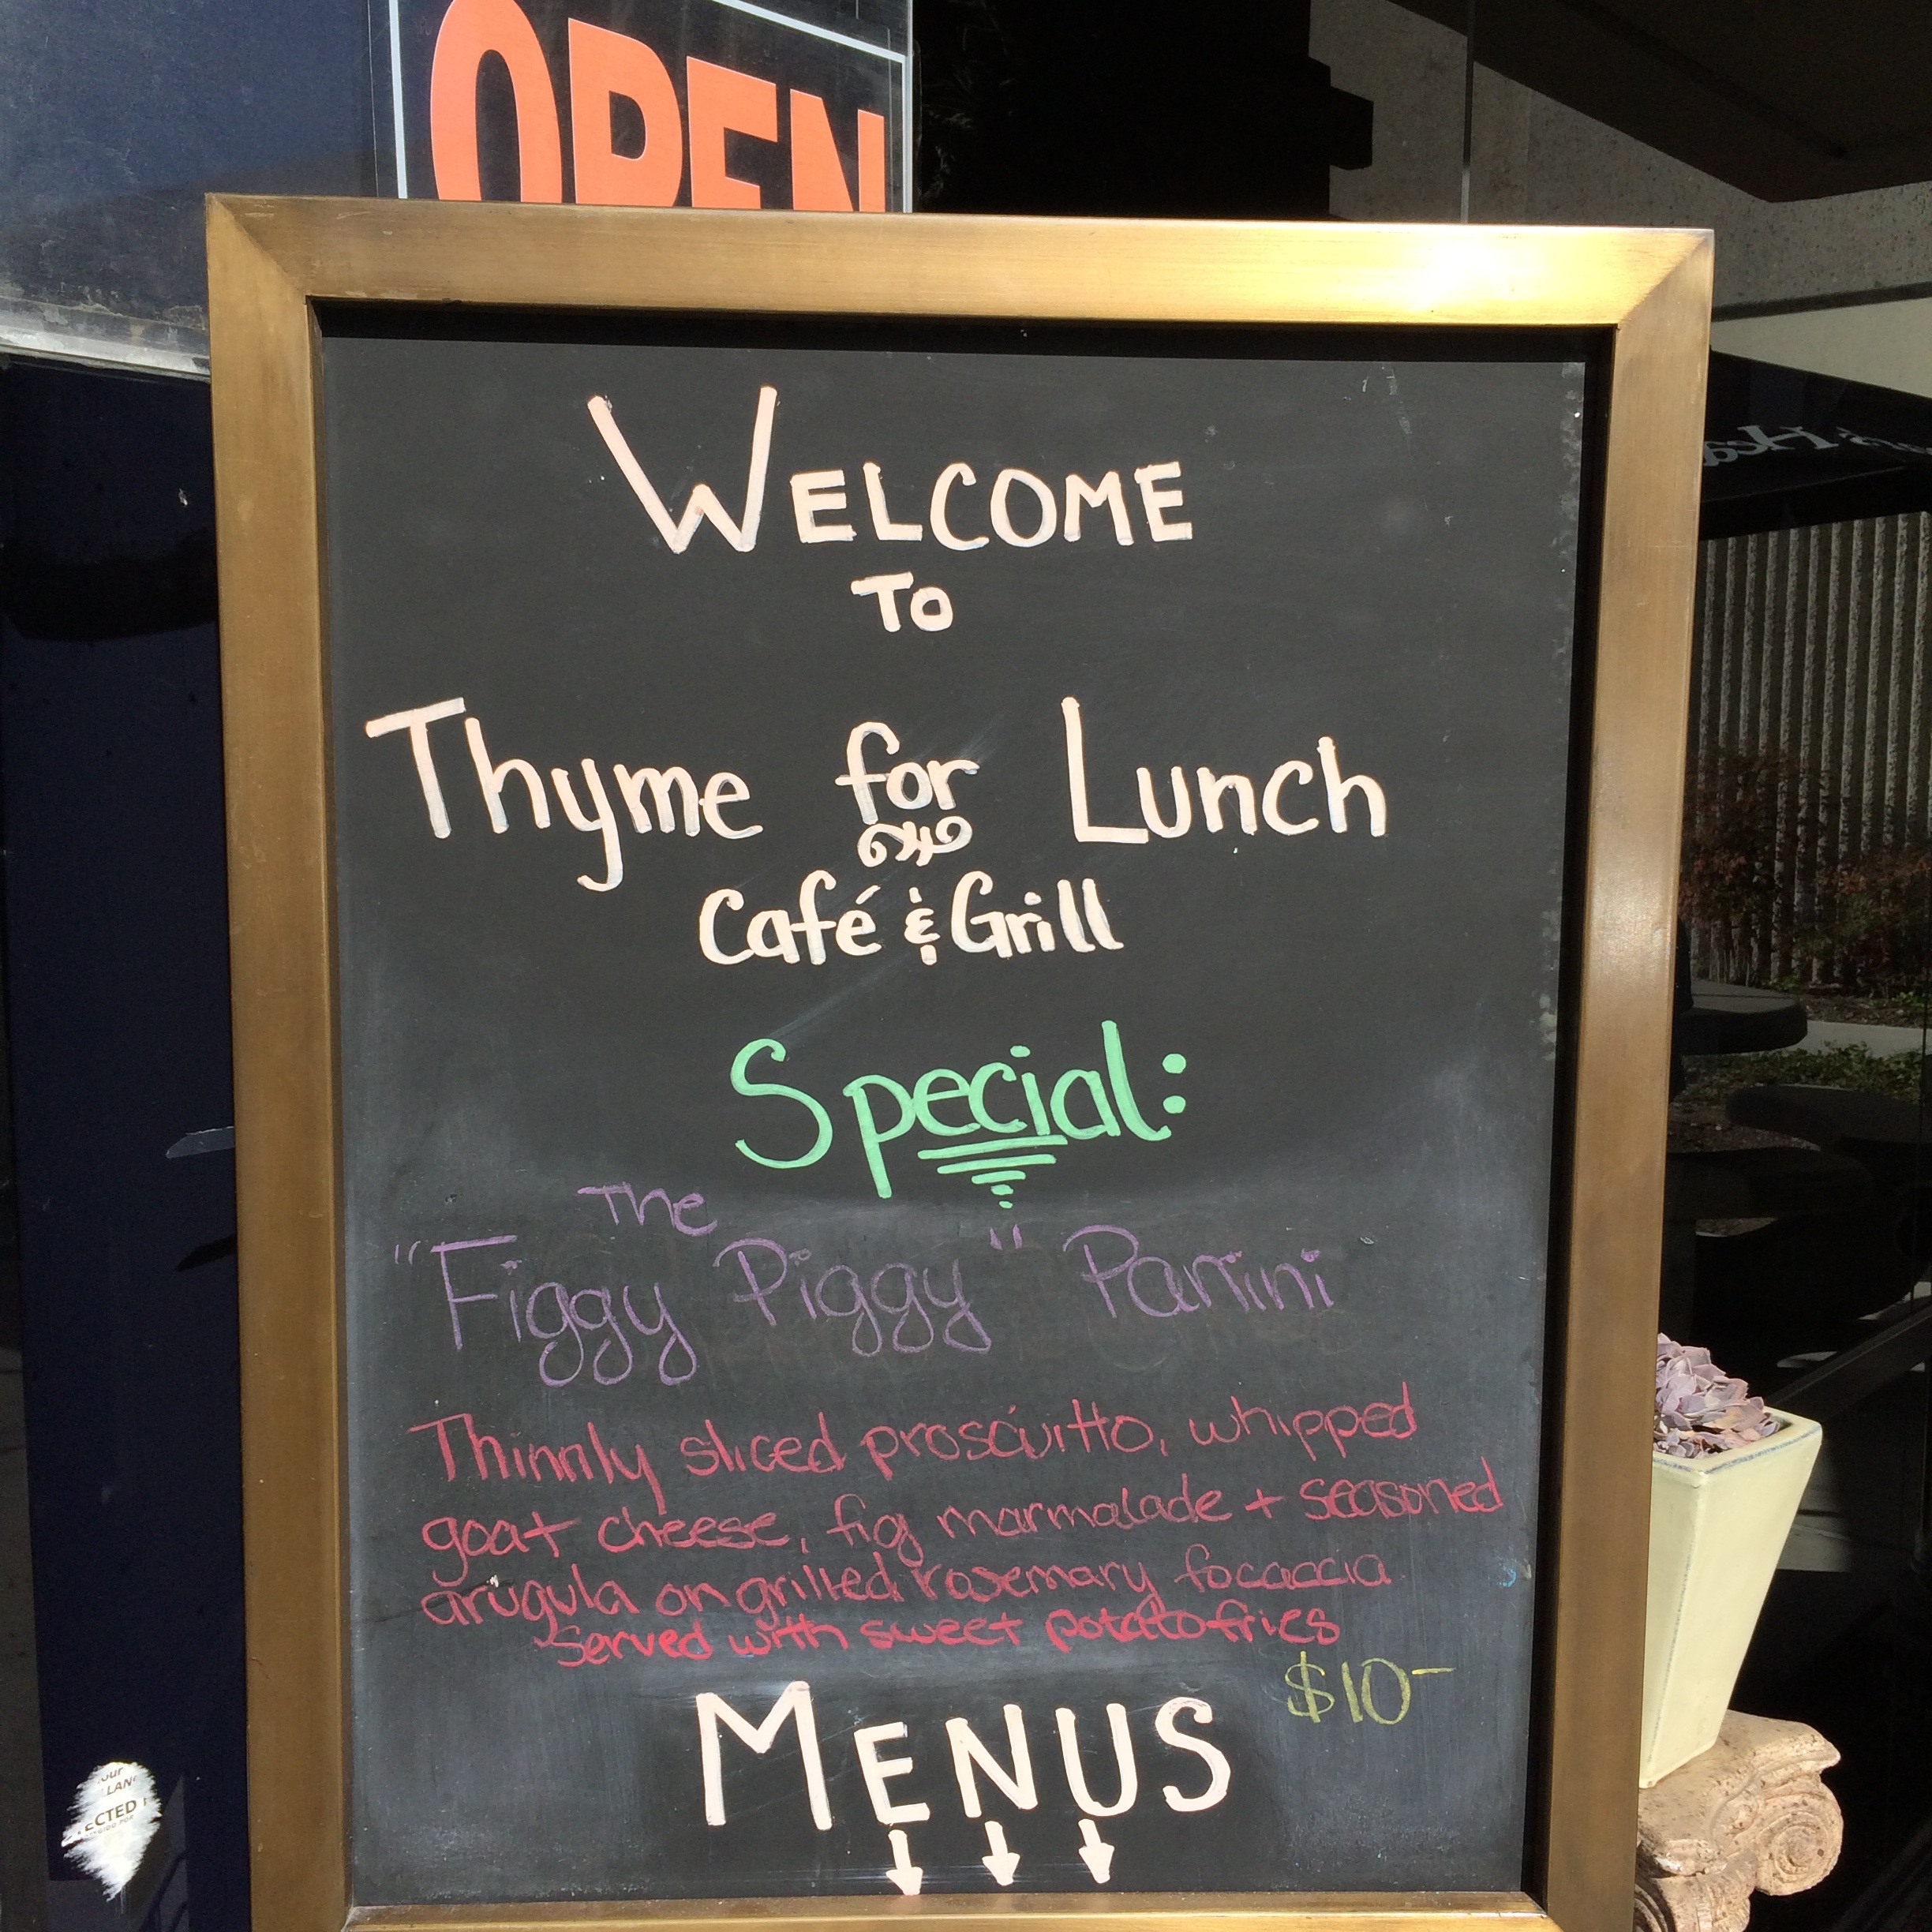 OPEN
WELCOME
TO
Thyme for Lunch
Café & Grill
Special:
The
"Figgy Piggy" Panini
Thinnly sliced proscuitto, whipped
goat cheese, fig marmalade + seasoned
arugula on grilled rosemary focaccia
Served with sweet potato fries
$10-
MENUS